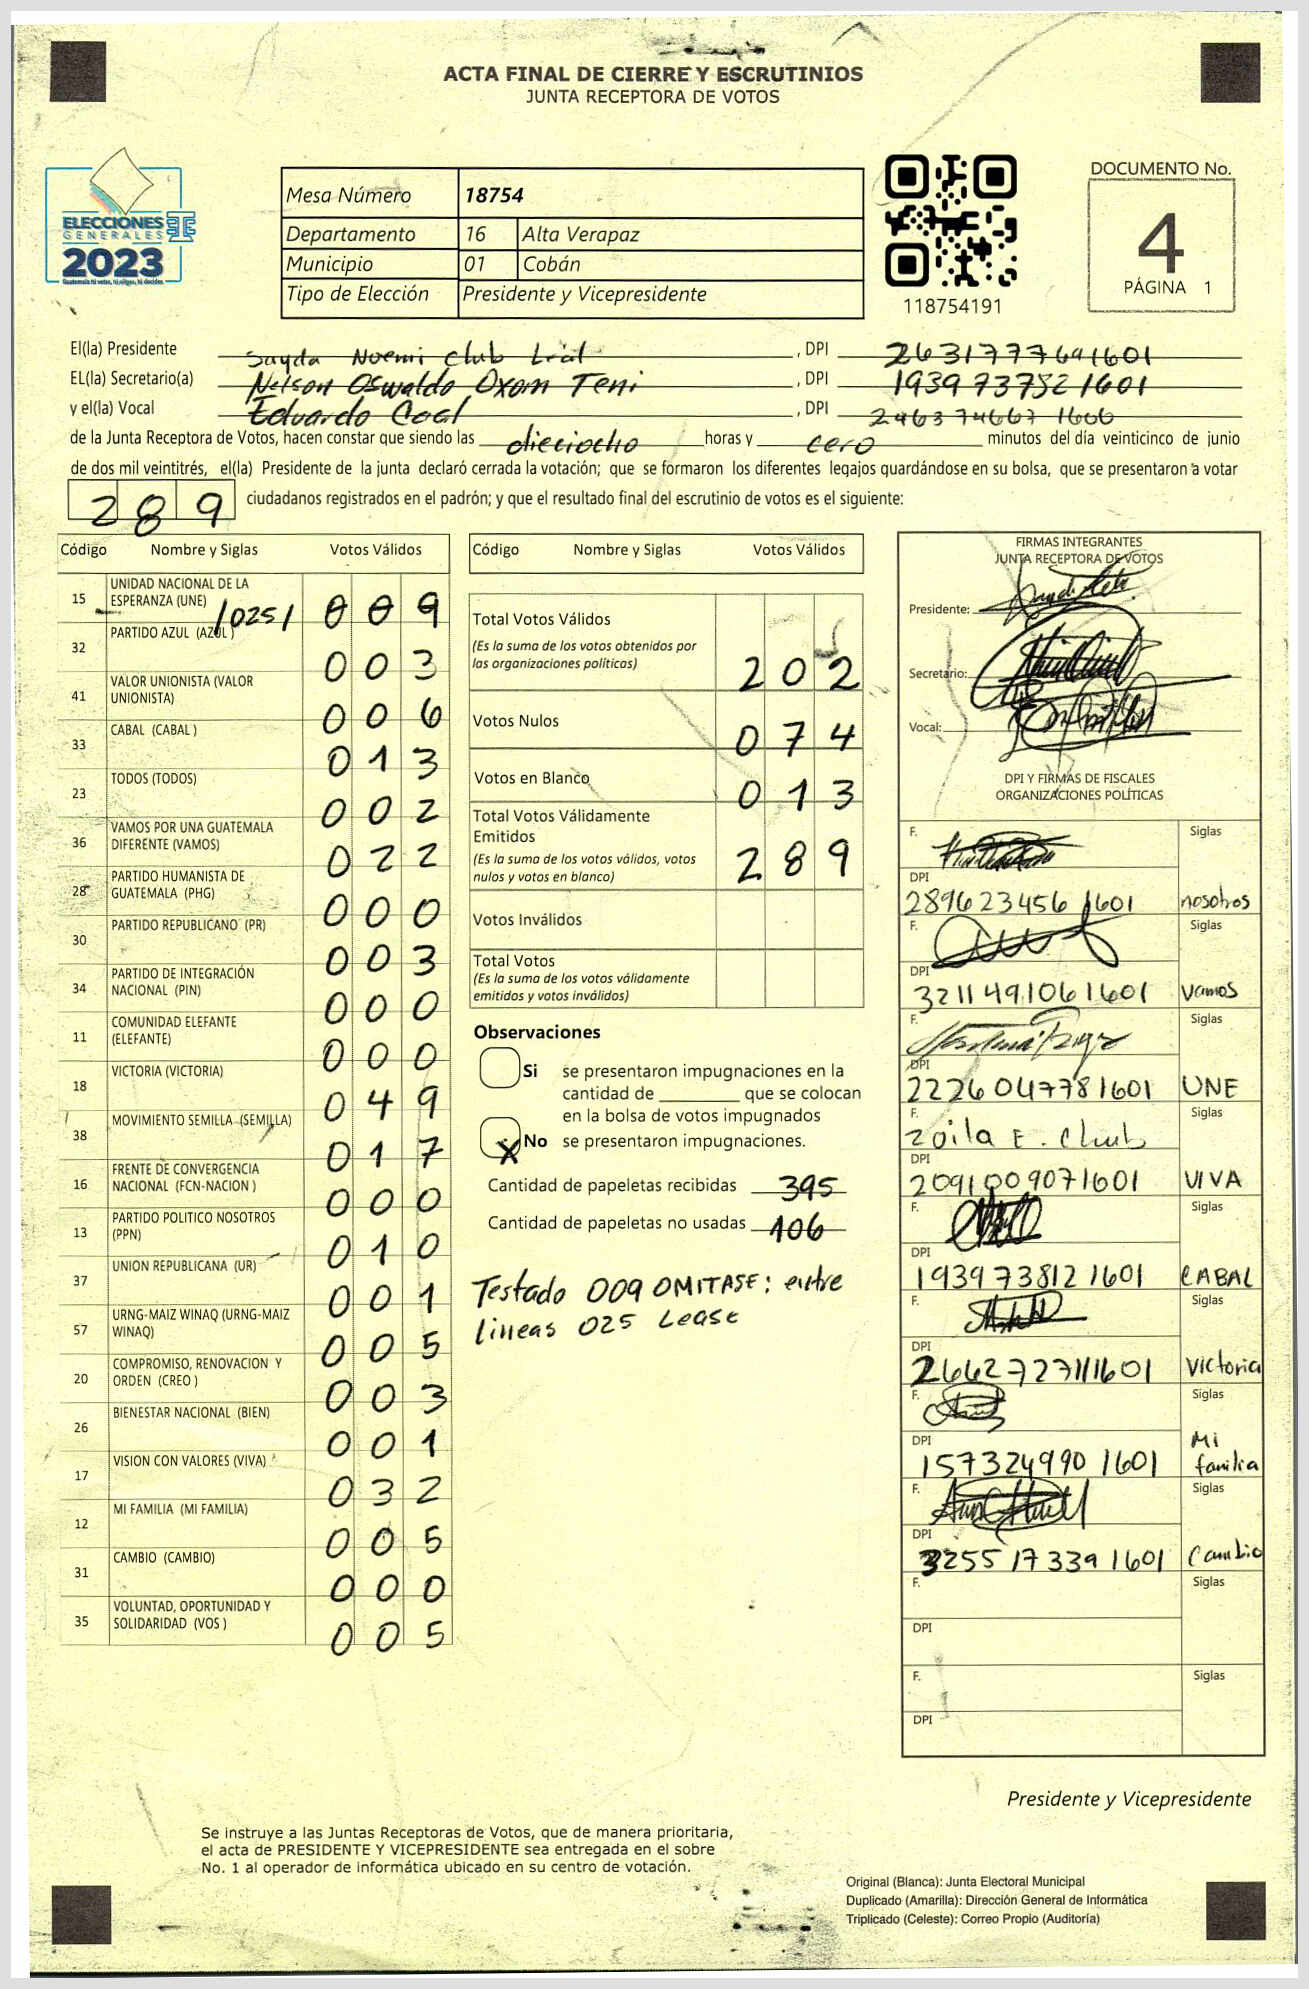 ACTA FINAL DE CIERRE Y ESCRUTINIOS
JUNTA RECEPTORA DE VOTOS
ELECCIONES
GENERALES
2023
Guatemala tú votas, tú eliges, tú decides
Mesa Número 18754
Departamento 16 Alta Verapaz
Municipio 01 Cobán
Tipo de Elección Presidente y Vicepresidente
118754191
DOCUMENTO No.
4
PÁGINA 1
El(la) Presidente Sayda Noemi Club Leal , DPI 2631777691601
EL(la) Secretario(a) Nelson Oswaldo Oxom Teni , DPI 1939737521601
y el(la) Vocal Eduardo Coal , DPI 2463746671600
de la Junta Receptora de Votos, hacen constar que siendo las dieciocho horas y cero minutos del día veinticinco de junio
de dos mil veintitrés, el(la) Presidente de la junta declaró cerrada la votación; que se formaron los diferentes legajos guardándose en su bolsa, que se presentaron a votar
289 ciudadanos registrados en el padrón; y que el resultado final del escrutinio de votos es el siguiente:
Código Nombre y Siglas Votos Válidos
15 UNIDAD NACIONAL DE LA ESPERANZA (UNE) /025/ 009
32 PARTIDO AZUL (AZUL) 003
41 VALOR UNIONISTA (VALOR UNIONISTA) 006
33 CABAL (CABAL ) 013
23 TODOS (TODOS) 002
36 VAMOS POR UNA GUATEMALA DIFERENTE (VAMOS) 022
28 PARTIDO HUMANISTA DE GUATEMALA (PHG) 000
30 PARTIDO REPUBLICANO (PR) 003
34 PARTIDO DE INTEGRACIÓN NACIONAL (PIN) 000
11 COMUNIDAD ELEFANTE (ELEFANTE) 000
18 VICTORIA (VICTORIA) 049
38 MOVIMIENTO SEMILLA (SEMILLA) 017
16 FRENTE DE CONVERGENCIA NACIONAL (FCN-NACION ) 000
13 PARTIDO POLITICO NOSOTROS (PPN) 010
37 UNION REPUBLICANA (UR) 001
57 URNG-MAIZ WINAQ (URNG-MAIZ WINAQ) 005
20 COMPROMISO, RENOVACION Y ORDEN (CREO ) 003
26 BIENESTAR NACIONAL (BIEN) 001
17 VISION CON VALORES (VIVA) 032
12 MI FAMILIA (MI FAMILIA) 005
31 CAMBIO (CAMBIO) 000
35 VOLUNTAD, OPORTUNIDAD Y SOLIDARIDAD (VOS ) 005
Código Nombre y Siglas Votos Válidos
Total Votos Válidos
(Es la suma de los votos obtenidos por
las organizaciones políticas) 202
Votos Nulos 074
Votos en Blanco 013
Total Votos Válidamente
Emitidos
(Es la suma de los votos válidos, votos
nulos y votos en blanco) 289
Votos Inválidos
Total Votos
(Es la suma de los votos válidamente
emitidos y votos inválidos)
Observaciones
Si se presentaron impugnaciones en la
cantidad de ________ que se colocan
en la bolsa de votos impugnados
X No se presentaron impugnaciones.
Cantidad de papeletas recibidas 395
Cantidad de papeletas no usadas 106
Testado 009 OMITASE: entre
lineas 025 Lease
FIRMAS INTEGRANTES
JUNTA RECEPTORA DE VOTOS
Presidente:
Secretario:
Vocal:
DPI Y FIRMAS DE FISCALES
ORGANIZACIONES POLÍTICAS
F. Siglas
DPI
2896234561601 nosotros
F. Siglas
DPI
3211491061601 Vamos
F. Siglas
DPI
2226047781601 UNE
F. Siglas
Zoila E. Club
DPI
2091009071601 VIVA
F. Siglas
DPI
1939738121601 CABAL
F. Siglas
DPI
2662727111601 Victoria
F. Siglas
DPI
1573249901601 Mi familia
F. Siglas
DPI
3255173391601 Cambio
F. Siglas
DPI
F. Siglas
DPI
Presidente y Vicepresidente
Se instruye a las Juntas Receptoras de Votos, que de manera prioritaria,
el acta de PRESIDENTE Y VICEPRESIDENTE sea entregada en el sobre
No. 1 al operador de informática ubicado en su centro de votación.
Original (Blanca): Junta Electoral Municipal
Duplicado (Amarilla): Dirección General de Informática
Triplicado (Celeste): Correo Propio (Auditoría)